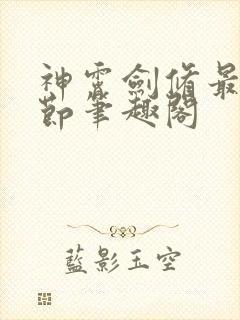 神霄劍脩最
節筆趣閣
藍影玉空